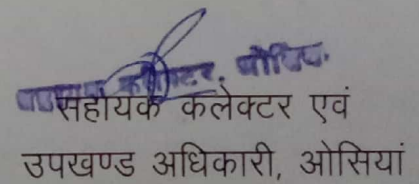 सहायक कलेक्टर एवं
उपखण्ड अधिकारी, ओसियां